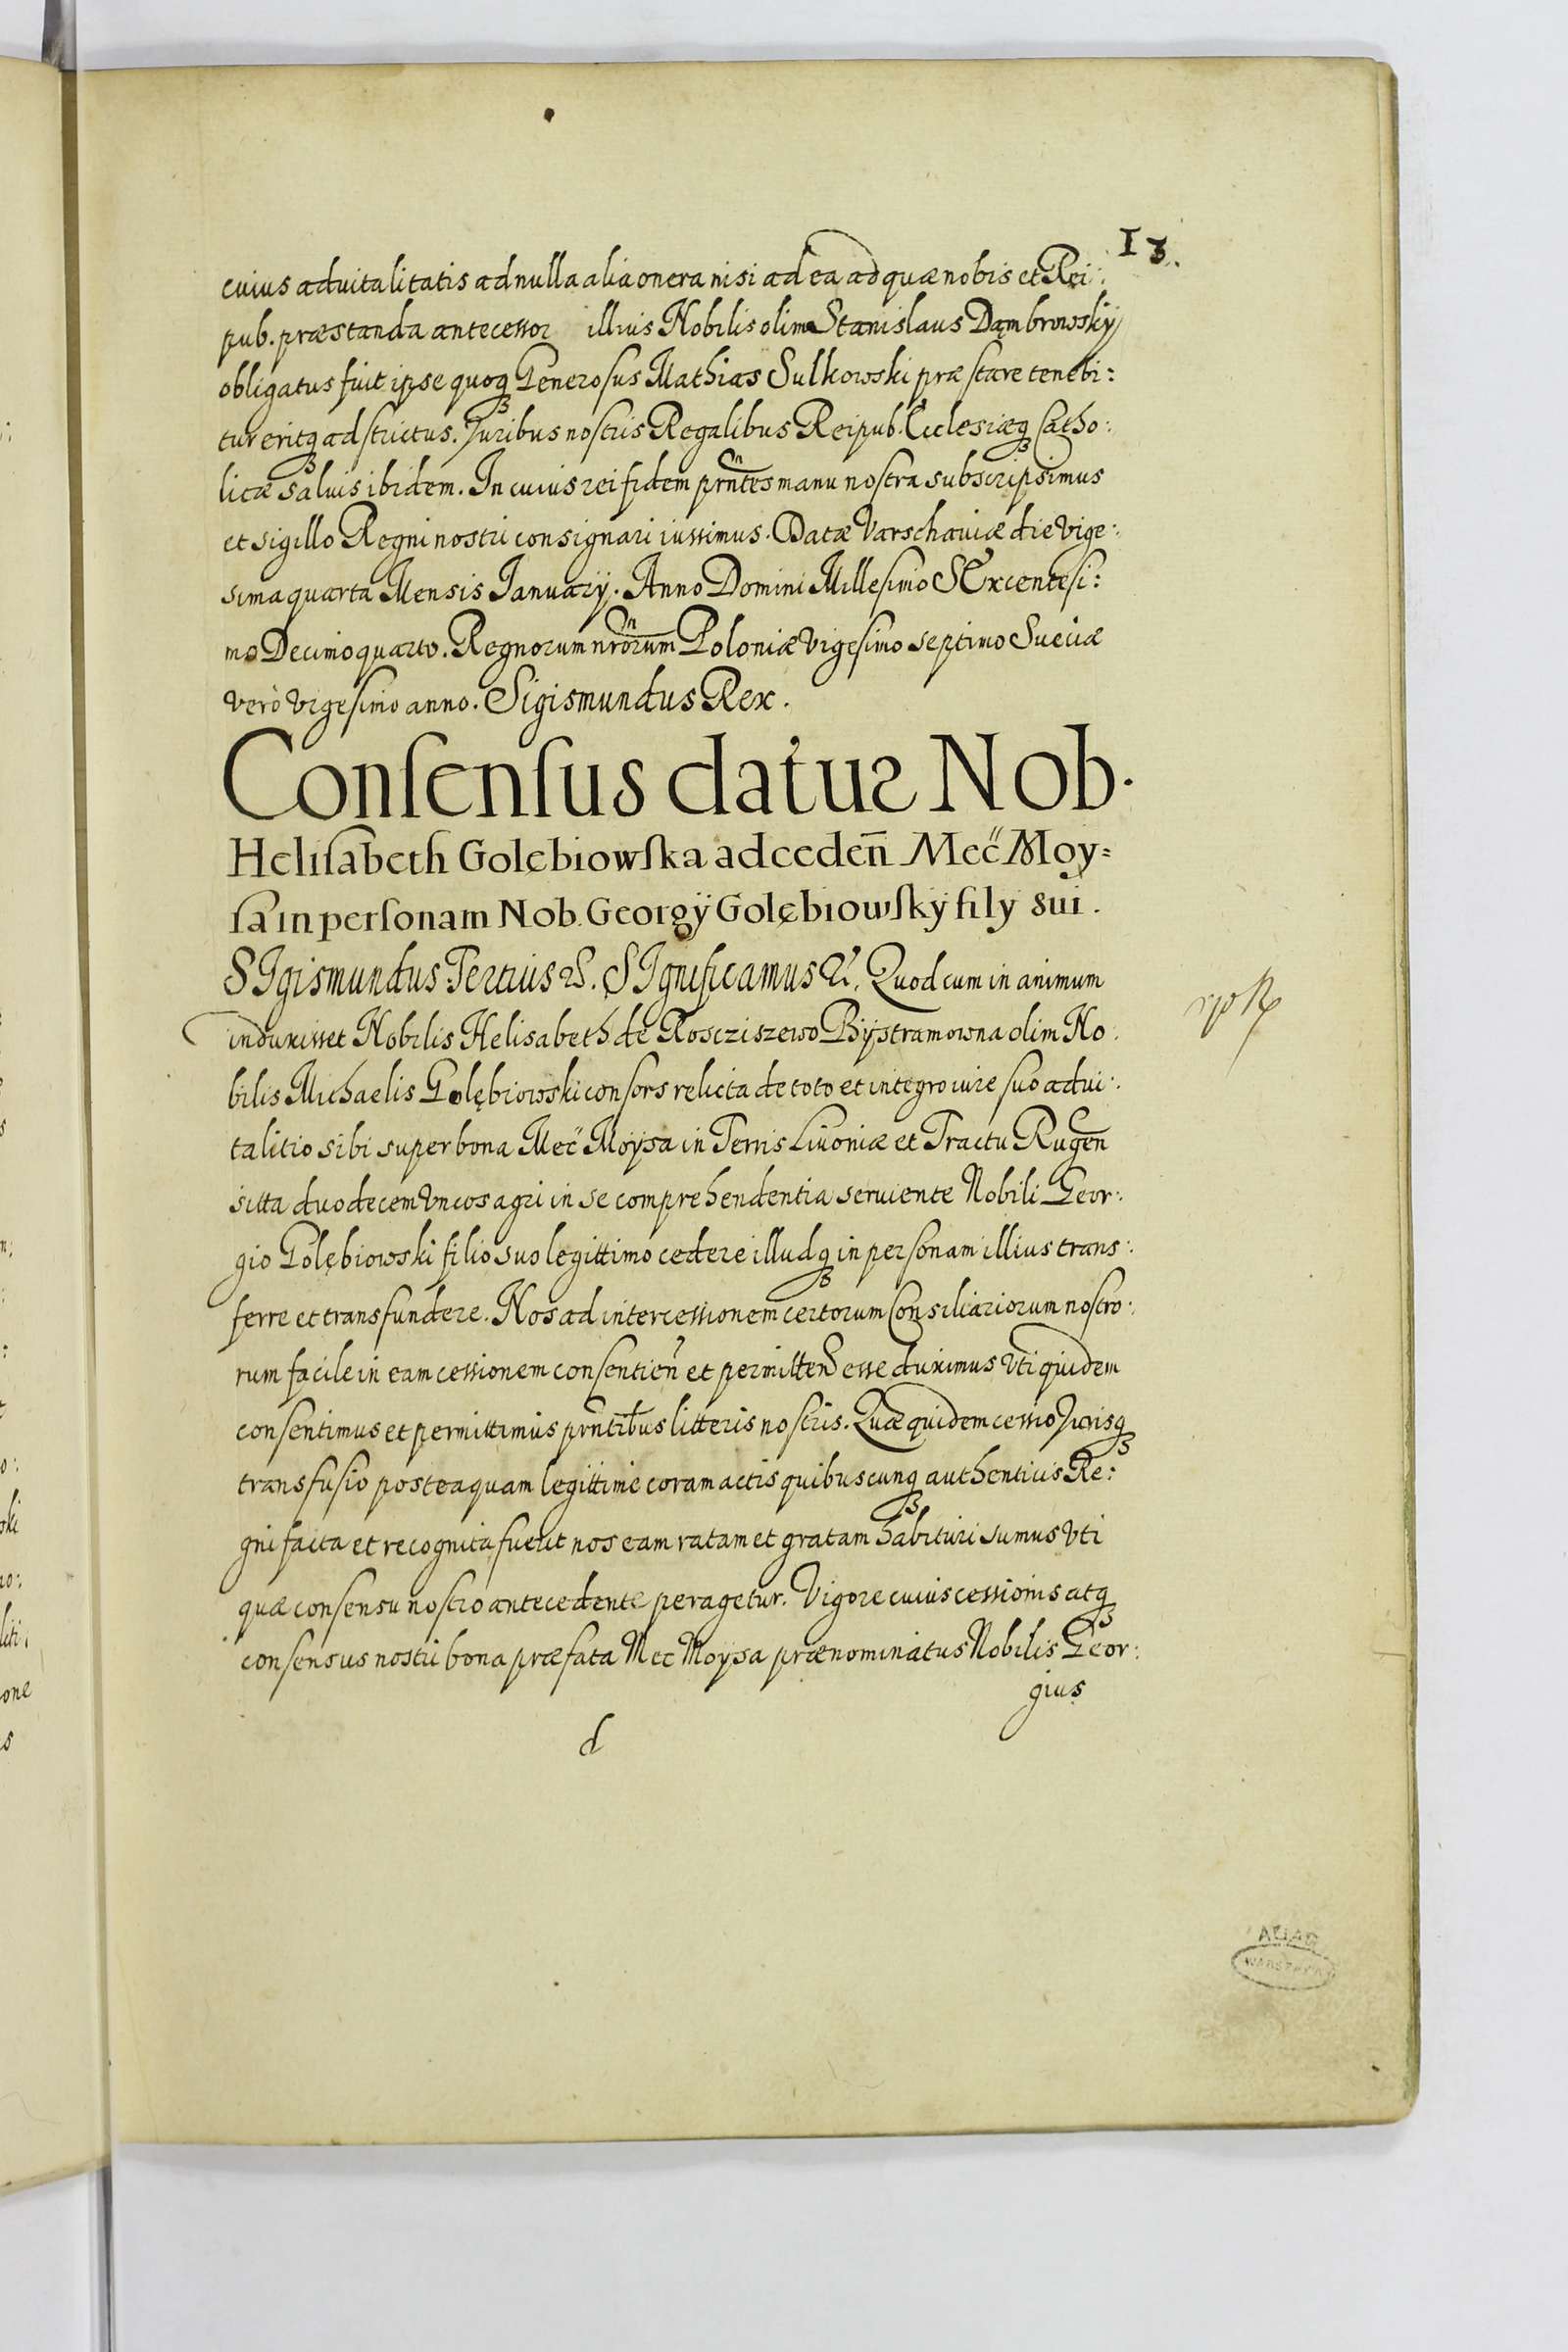 13.
cuius aduitalitatis ad nulla alia onera nisi ad ea ad quæ nobis et Rei:
pub. præstanda antecessor illius Nobilis olim Stanislaus Dąmbrowskÿ
obligatus fuit ipse quoqꝫ Generosus Mathias Sulkowski præstare tenebi:
tur eritqꝫ adstrictus. Juribus nostris Regalibus Reipub. Ecclesiæqꝫ Catho:
licæ saluis ibidem. In cuius rei fidem prñtes manu nostra subscripsimus
et sigillo Regni nostri consignari iussimus. Datæ Varschauiæ die Vige:
sima quarta Mensis Januarÿ. Anno Domini Millesimo SExcentesi:
mo Decimo quarto. Regnorum nrorum Poloniæ Vigesimo septimo Sueciæ
verò vigesimo anno. Sigismundus Rex.
Consensus datus Nob.
Helisabeth Golębiowska ad ceden̄ Mec̈ Moy=
sa in personam Nob. Georgÿ Golębiowskÿ filÿ sui.
SIgismundus Tertius &. SIgnificamus &. Quod cum in animum
induxisset Nobilis Helisabeth de Roscziszewo Bÿstramowna olim No:
bilis Michaelis Golębiowski consors relicta de toto et integro iure suo adui:
talitio sibi super bona Mec̈ Moÿsa in Terris Liuoniæ et Tractu Rugen
sitta duodecem Vncos agri in se comprehendentia seruiente Nobili Geor:
gio Golębiowski filio suo legittimo cedere illudqꝫ in personam illius trans:
ferre et transfundere. Nos ad intercessionem certorum Consiliariorum nostro:
rum facile in eam cessionem consentien̄ et permitten̄ esse duximus Vti quidem
consentimus et permittimus prñtibus litteris nostris. Quæ quidem cessio Jurisqꝫ
transfusio posteaquam legittime coram actis quibuscunqꝫ authenticis Re:
gni facta et recognita fuerit nos eam ratam et gratam habituri sumus Vti
quæ consensu nostro antecedente peragetur. Vigore cuius cessionis atqꝫ
consensus nostri bona præfata Mec Moysa prænominatus Nobilis Geor:
gius
d
AGAD
WARSZAWA